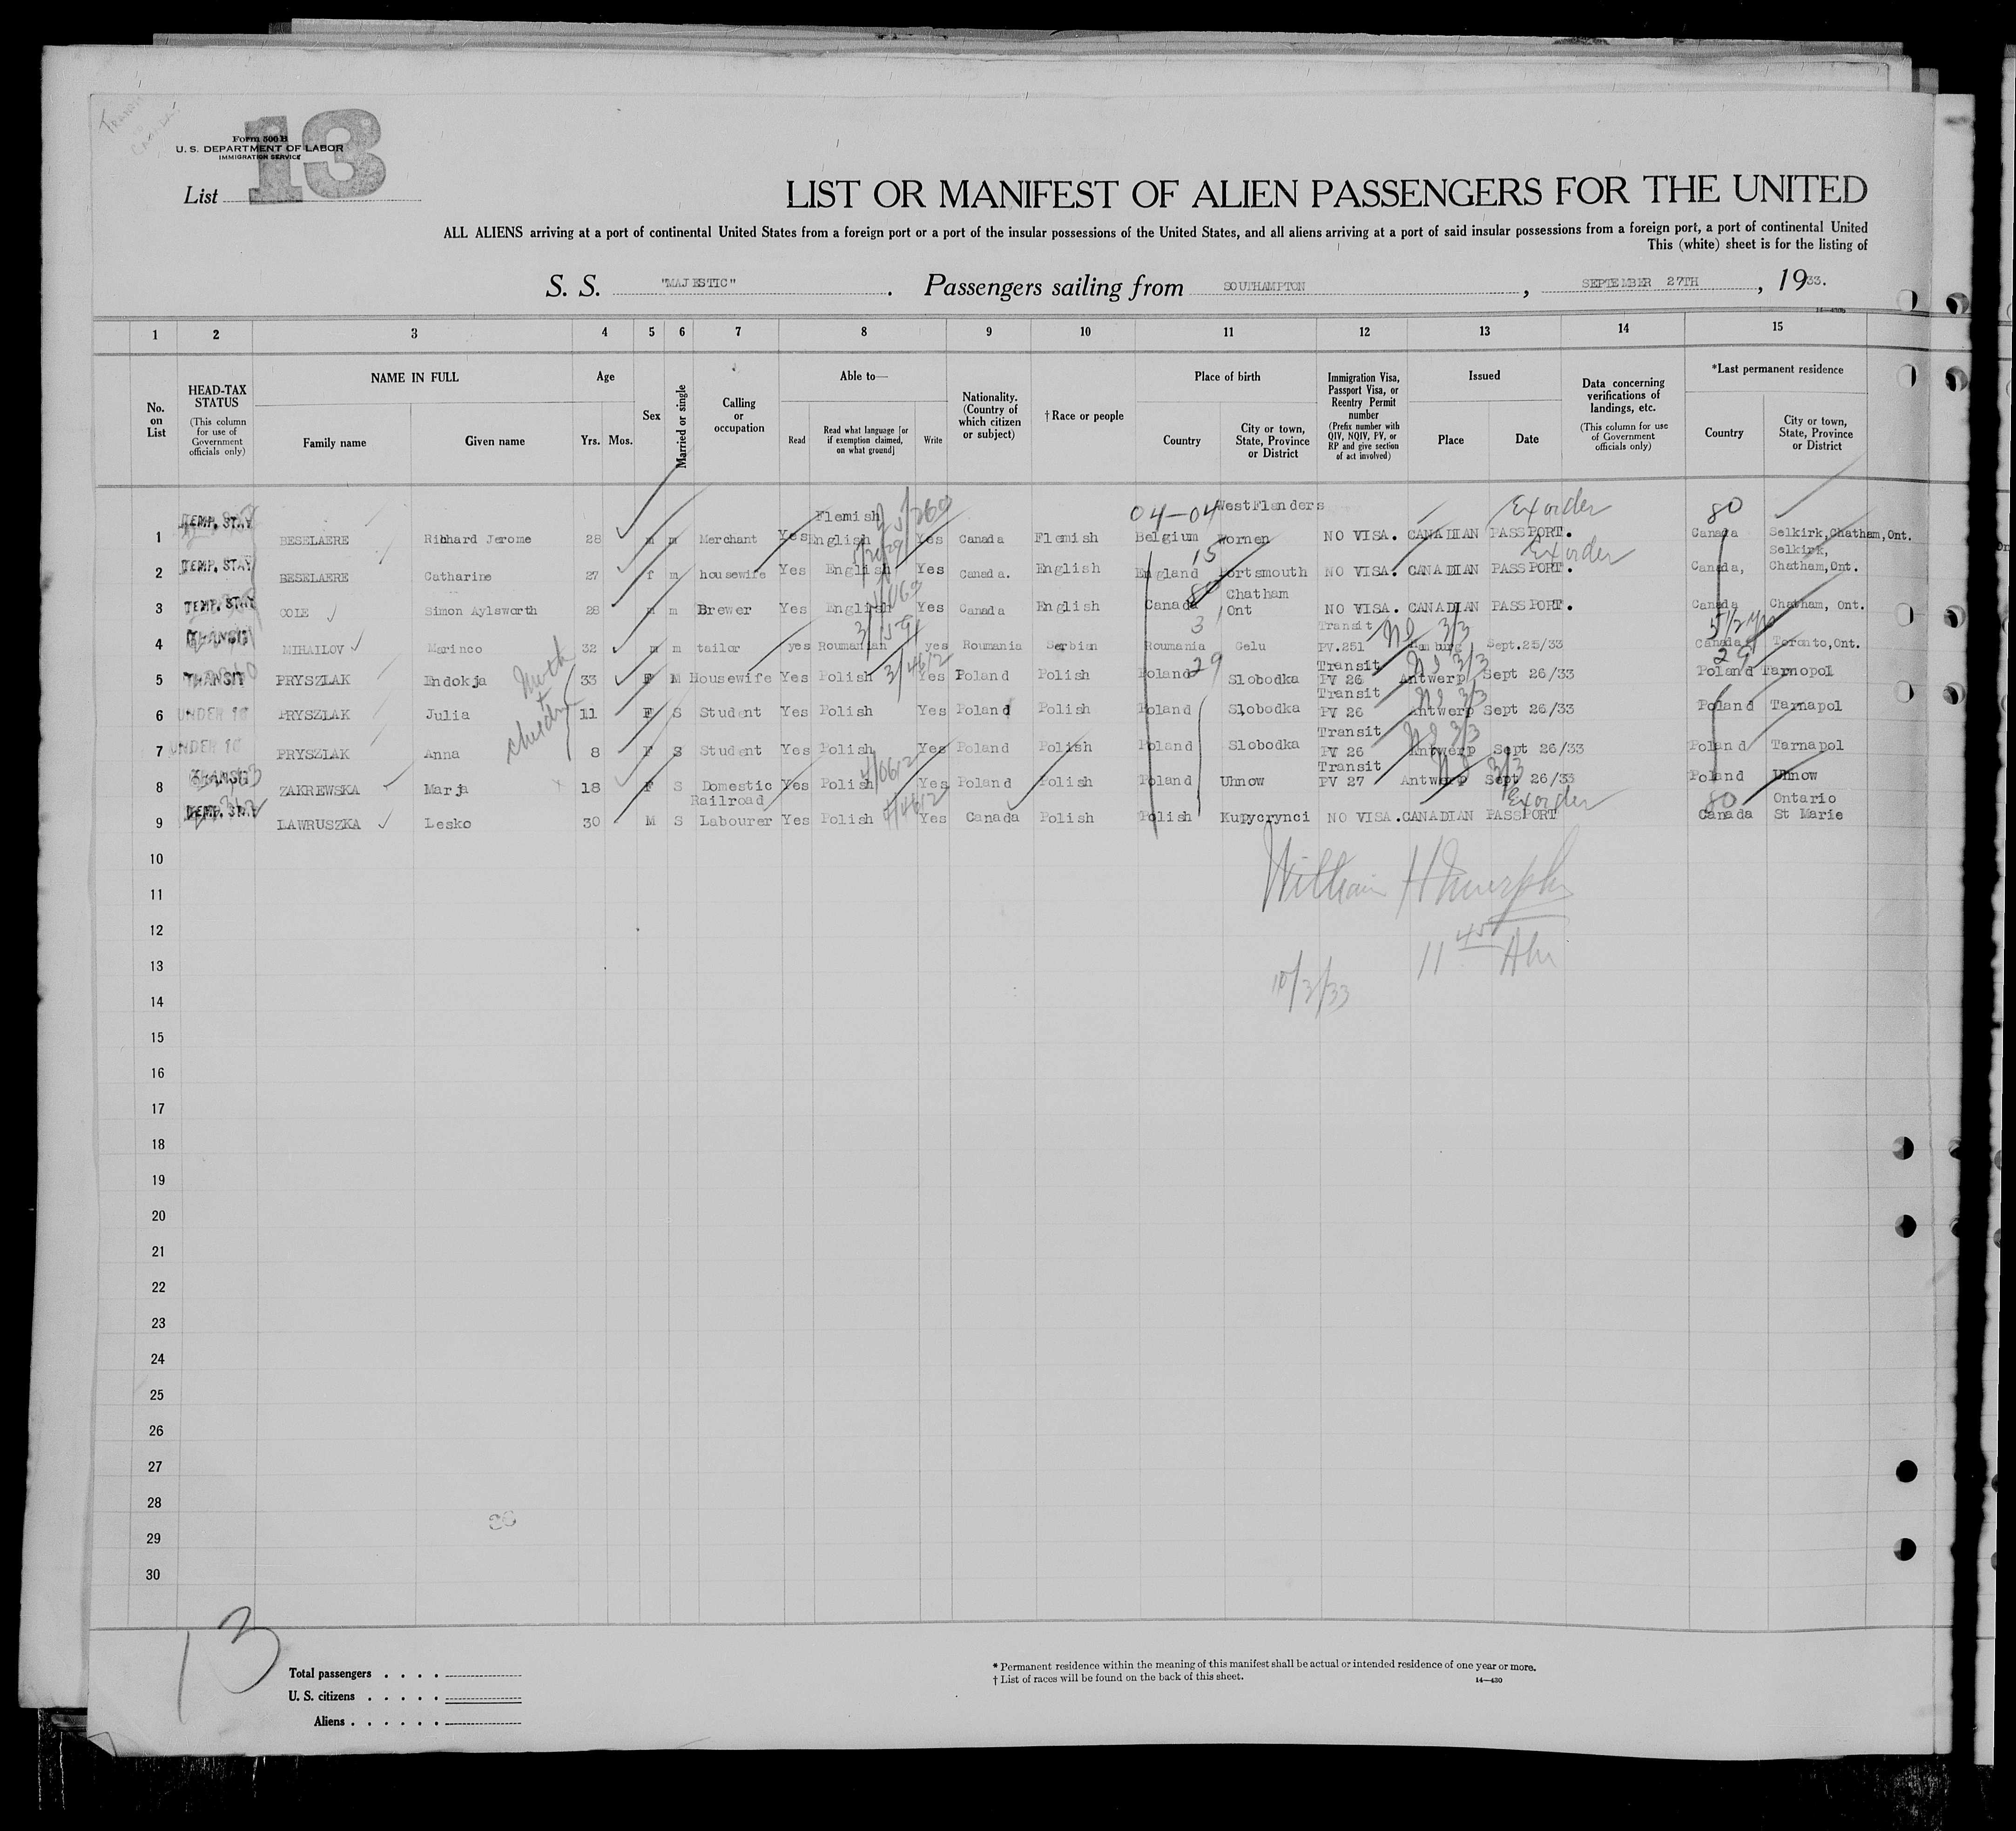 Form 500 B
U. S. DEPARTMENT OF LABOR
IMMIGRATION SERVICE
List 13
LIST OR MANIFEST OF ALIEN PASSENGERS FOR THE UNITED
ALL ALIENS arriving at a port of continental United States from a foreign port or a port of the insular possessions of the United States, and all aliens arriving at a port of said insular possessions from a foreign port, a port of continental United
This (white) sheet is for the listing of
S. S. "MAJESTIC". Passengers sailing from SOUTHAMPTON, SEPTEMBER 27TH, 1933.
1 2 3 4 5 6 7 8 9 10 11 12 13 14 15
No. on List
HEAD-TAX STATUS (This column for use of Government officials only)
NAME IN FULL
Family name
Given name
Age
Yrs. Mos.
Sex
Married or single
Calling or occupation
Able to—
Read
Read what language [or if exemption claimed, on what ground]
Write
Nationality. (Country of which citizen or subject)
† Race or people
Place of birth
Country
City or town, State, Province or District
Immigration Visa, Passport Visa, or Reentry Permit number (Prefix number with QIV, NQIV, PV, or RP and give section of act involved)
Issued
Place
Date
Data concerning verifications of landings, etc. (This column for use of Government officials only)
*Last permanent residence
Country
City or town, State, Province or District
Flemish 04-04 West Flanders Ex order 80
1 TEMP. STAY BESELAERE Rihhard Jerome 28 m m Merchant Yes English Yes Canada Flemish Belgium Wornen NO VISA. CANADIAN PASSPORT. Canada Selkirk, Chatham, Ont.
15 Ex order Selkirk,
2 TEMP. STAY BESELAERE Catharine 27 f m housewife Yes English Yes Canada. English England Portsmouth NO VISA. CANADIAN PASSPORT. Canada, Chatham, Ont.
80 Chatham
3 TEMP. STAY COLE Simon Aylsworth 28 m m Brewer Yes English Yes Canada English Canada Ont NO VISA. CANADIAN PASSPORT. Canada Chatham, Ont.
3 Transit 3/3 5 1/2 yrs
4 TRANSIT MIHAILOV Marinco 32 m m tailor yes Roumanian yes Roumania Serbian Roumania Gelu PV.251 Hamburg Sept.25/33 Canada Toronto, Ont.
29 Transit 3/3 29
5 TRANSIT PRYSZLAK Endokja 33 F M Housewife Yes Polish Yes Poland Polish Poland Slobodka PV 26 Antwerp Sept 26/33 Poland Tarnopol
Transit 3/3
6 UNDER 16 PRYSZLAK Julia 11 F S Student Yes Polish Yes Poland Polish Poland Slobodka PV 26 Antwerp Sept 26/33 Poland Tarnapol
Transit 3/3
7 UNDER 16 PRYSZLAK Anna 8 F S Student Yes Polish Yes Poland Polish Poland Slobodka PV 26 Antwerp Sept 26/33 Poland Tarnapol
Transit 3/3
8 TRANSIT ZAKREWSKA Marja 18 F S Domestic Yes Polish Yes Poland Polish Poland Uhnow PV 27 Antwerp Sept 26/33 Poland Uhnow
Railroad Ex order 80 Ontario
9 TEMP. STAY LAWRUSZKA Lesko 30 M S Labourer Yes Polish Yes Canada Polish Polish Kupycrynci NO VISA. CANADIAN PASSPORT Canada St Marie
children
10
William H Murphy
11
12
11 45 AM
13
10/3/33
14
15
16
17
18
19
20
21
22
23
24
25
26
27
28
29
30
13
Total passengers . . . .
U. S. citizens . . . . .
Aliens . . . . . .
* Permanent residence within the meaning of this manifest shall be actual or intended residence of one year or more.
† List of races will be found on the back of this sheet.
14—430